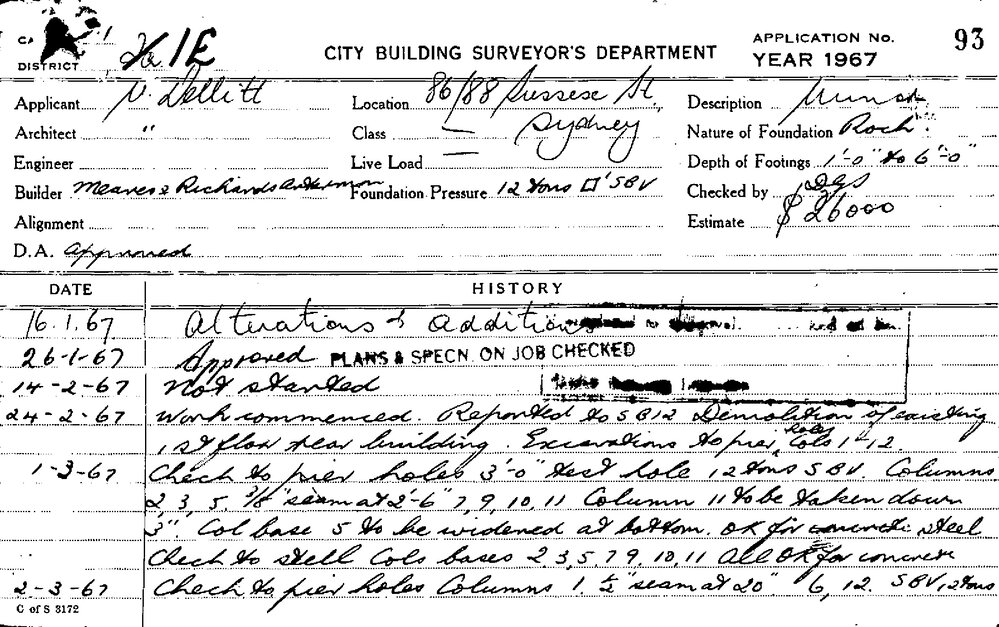 DISTRICT 1E
CITY BUILDING SURVEYOR'S DEPARTMENT
APPLICATION No. 93
YEAR 1967
Applicant V. Dellitt
Location 86/88 Sussex St, Sydney
Description
Architect "
Class —
Nature of Foundation Rock
Engineer
Live Load —
Depth of Footings 1'-0" to 6'-0"
Builder Meares & Richards
Foundation Pressure 12 tons □' SBV
Checked by
Alignment
Estimate $ 26000
D.A. Approved
DATE HISTORY
16.1.67 Alterations & additions
26-1-67 Approved PLANS & SPECN. ON JOB CHECKED
14-2-67 Not started
24-2-67 Work commenced. Reported to SB12 Demolition of existing
1st floor rear building. Excavations to pier holes Cols 1-12
1-3-67 Check to pier holes 3'-0" test hole 12 tons SBV. Columns
2, 3, 5, 3/8" seam at 2'-6" 7, 9, 10, 11 Column 11 to be taken down
3". Col base 5 to be widened at bottom. OK for concrete steel
Check to steel Cols bases 2 3, 5, 7 9, 10, 11 All OK for concrete
2-3-67 Check to pier holes Columns 1. ½" seam at 20" 6, 12. SBV 12 tons
C of S 3172